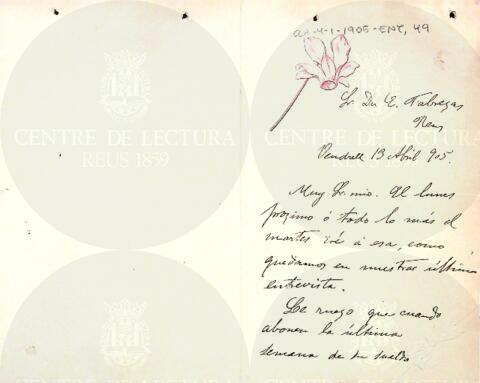 CA-4-1-1905-ENT, 49
Sr. Dn. E. Fabregas
Reus
Vendrell 13 Abril 905.
Muy Sr. mio. Al lunes
proximo ó todo lo más el
martes iré á esa, como
quedamos en nuestra última
entrevista.
Le ruego que cuando
abonen la última
semana de su sueldo
CENTRE DE LECTURA
REUS 1859
CENTRE DE LECTURA
REUS 1859